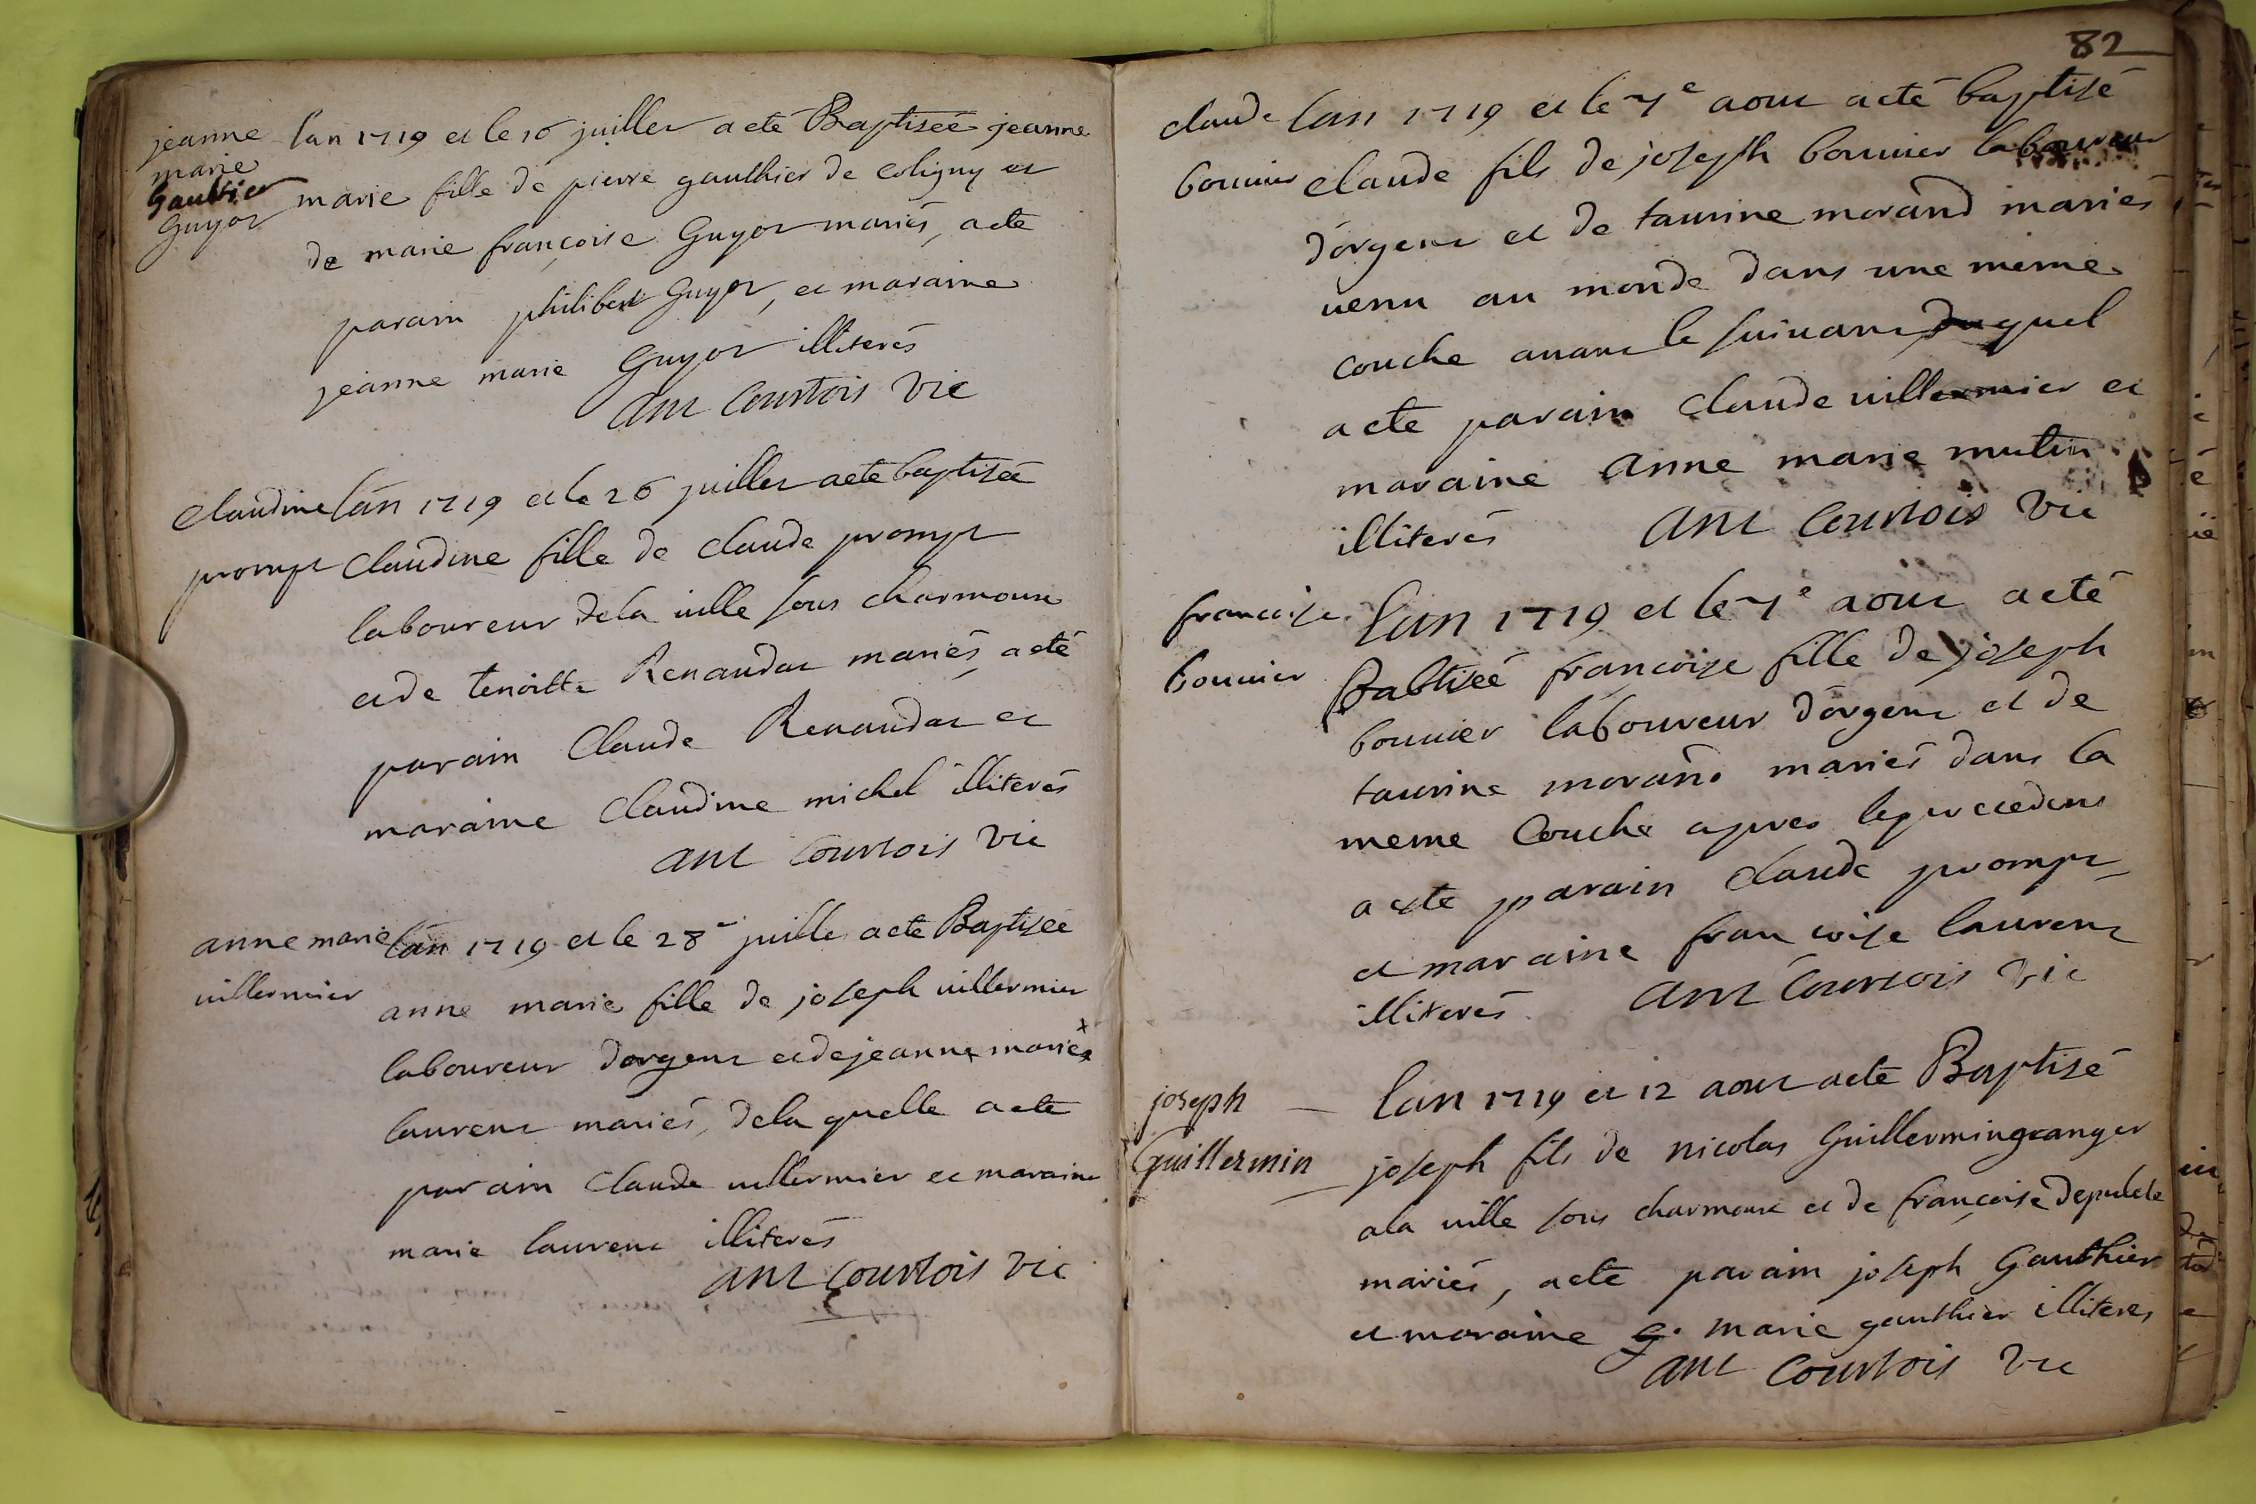 jeanne
marie
Gautier
Guyot
lan 1719 et le 16 juillet a eté Baptiseé jeanne
marie fille de pierre gauthier de coligny et
de marie françoise Guyot mariés, a eté
parain philibert Guyot, et maraine
jeanne marie Guyot illiterés
Ant Courtois Vic
claudine
prompt
lan 1719 et le 26 juillet a eté baptiseé
claudine fille de claude prompt
laboureur de la ville sous charmoux
et de tenoitte Renaudat mariés a eté
parain Claude Renaudat et
maraine Claudine michel illiterés
Ant Courtois Vic
anne marie
villermier
lan 1719 et le 28e juille a eté Baptiseé
anne marie fille de joseph villermier
laboureur dorgent et de jeanne marie
laurent mariés, de la quelle a eté
parain claude villermier et maraine
marie laurent illiterés
Ant Courtois Vic
82
claude
bouvier
lan 1719 et le 7e aout a eté baptisé
claude fils de joseph bouvier laboureur
dorgent et de taurine morand mariés
venu au monde dans une meme
couche avant le suivant duquel
a eté parain claude villermier et
maraine anne marie mutin
illiterés Ant Courtois Vic
francoise
bouvier
lan 1719 et le 7e aout a eté
Babtiseé francoise fille de joseph
bouvier laboureur dorgent et de
taurine morand mariés dans la
meme Couche apres le precedent
a eté parain claude prompt
et maraine francoise laurent
illiterés Ant Courtois Vic
joseph
Guillermin
lan 1719 et 12 aout a eté Baptisé
joseph fils de nicolas Guillermin granger
a la ville sous charmoux et de françoise
mariés, a eté parain joseph Gauthier
et maraine marie gauthier illiterés
Ant Courtois Vic